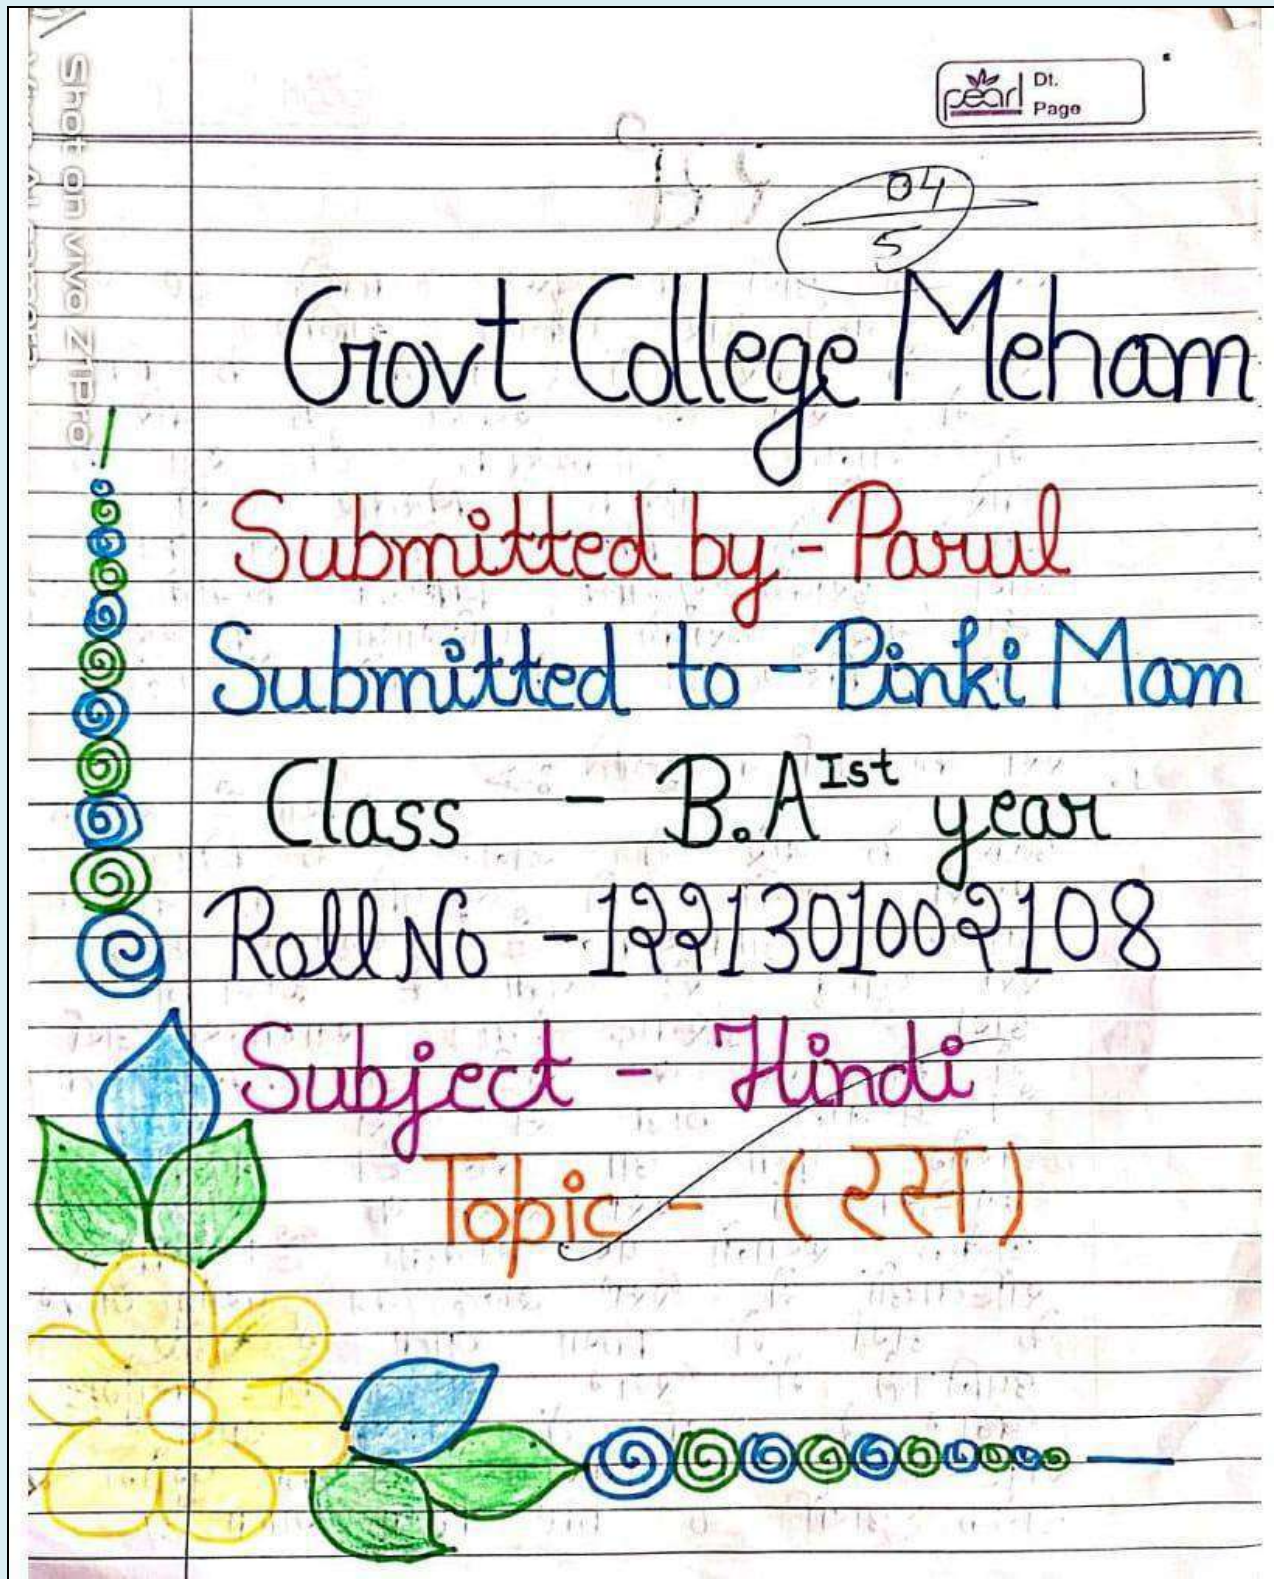 Shot on vivo Z1Pro
pearl
Dt.
Page
04
5
Govt College Meham
Submitted by - Parul
Submitted to - Pinki Mam
Class - B.A Ist year
Roll No - 1221301002108
Subject - Hindi
Topic - (रस)